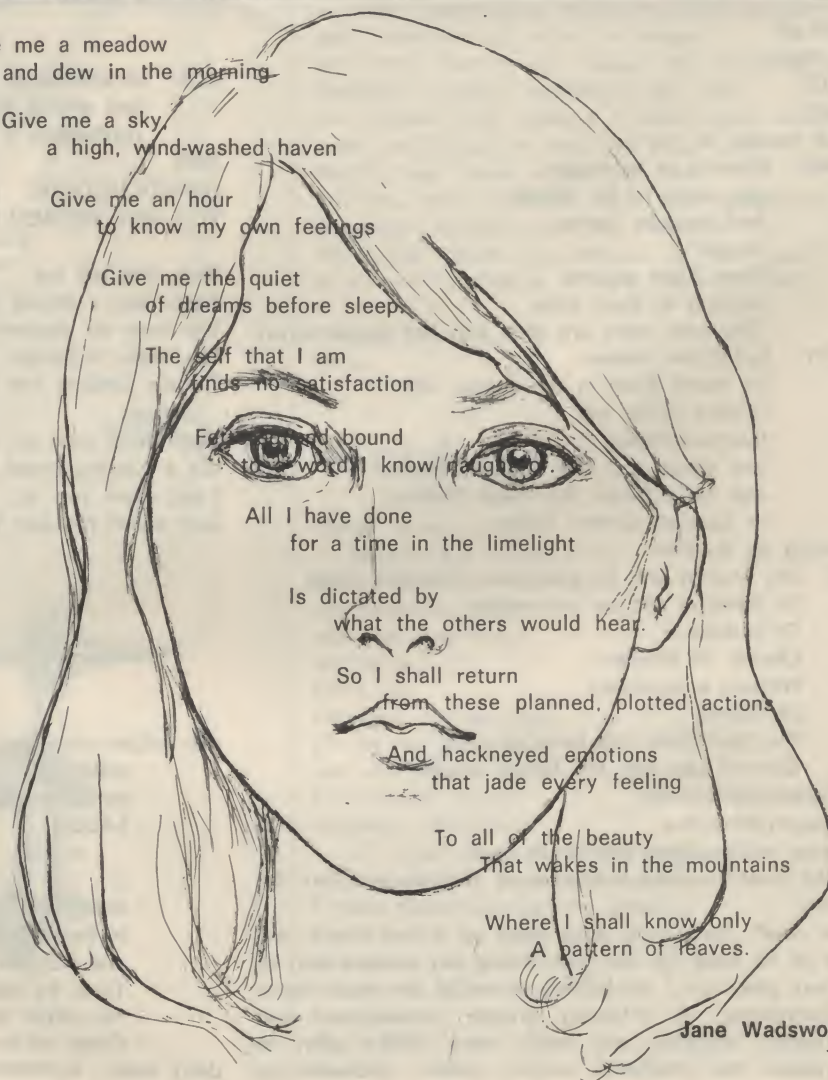 me a meadow
and dew in the morning
Give me a sky,
a high, wind-washed haven
Give me an hour
to know my own feelings
Give me the quiet
of dreams before sleep.
The self that I am
finds no satisfaction
bound
to a word I know naught of.
All I have done
for a time in the limelight
Is dictated by
what the others would hear.
So I shall return
from these planned, plotted actions
And hackneyed emotions
that jade every feeling
To all of the beauty
That wakes in the mountains
Where I shall know only
A pattern of leaves.
Jane